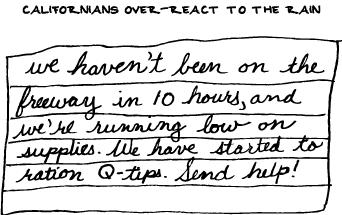 CALIFORNIANS OVER-REACT TO THE RAIN
we haven't been on the
freeway in 10 hours, and
we're running low on
supplies. We have started to
ration Q-tips. Send help!